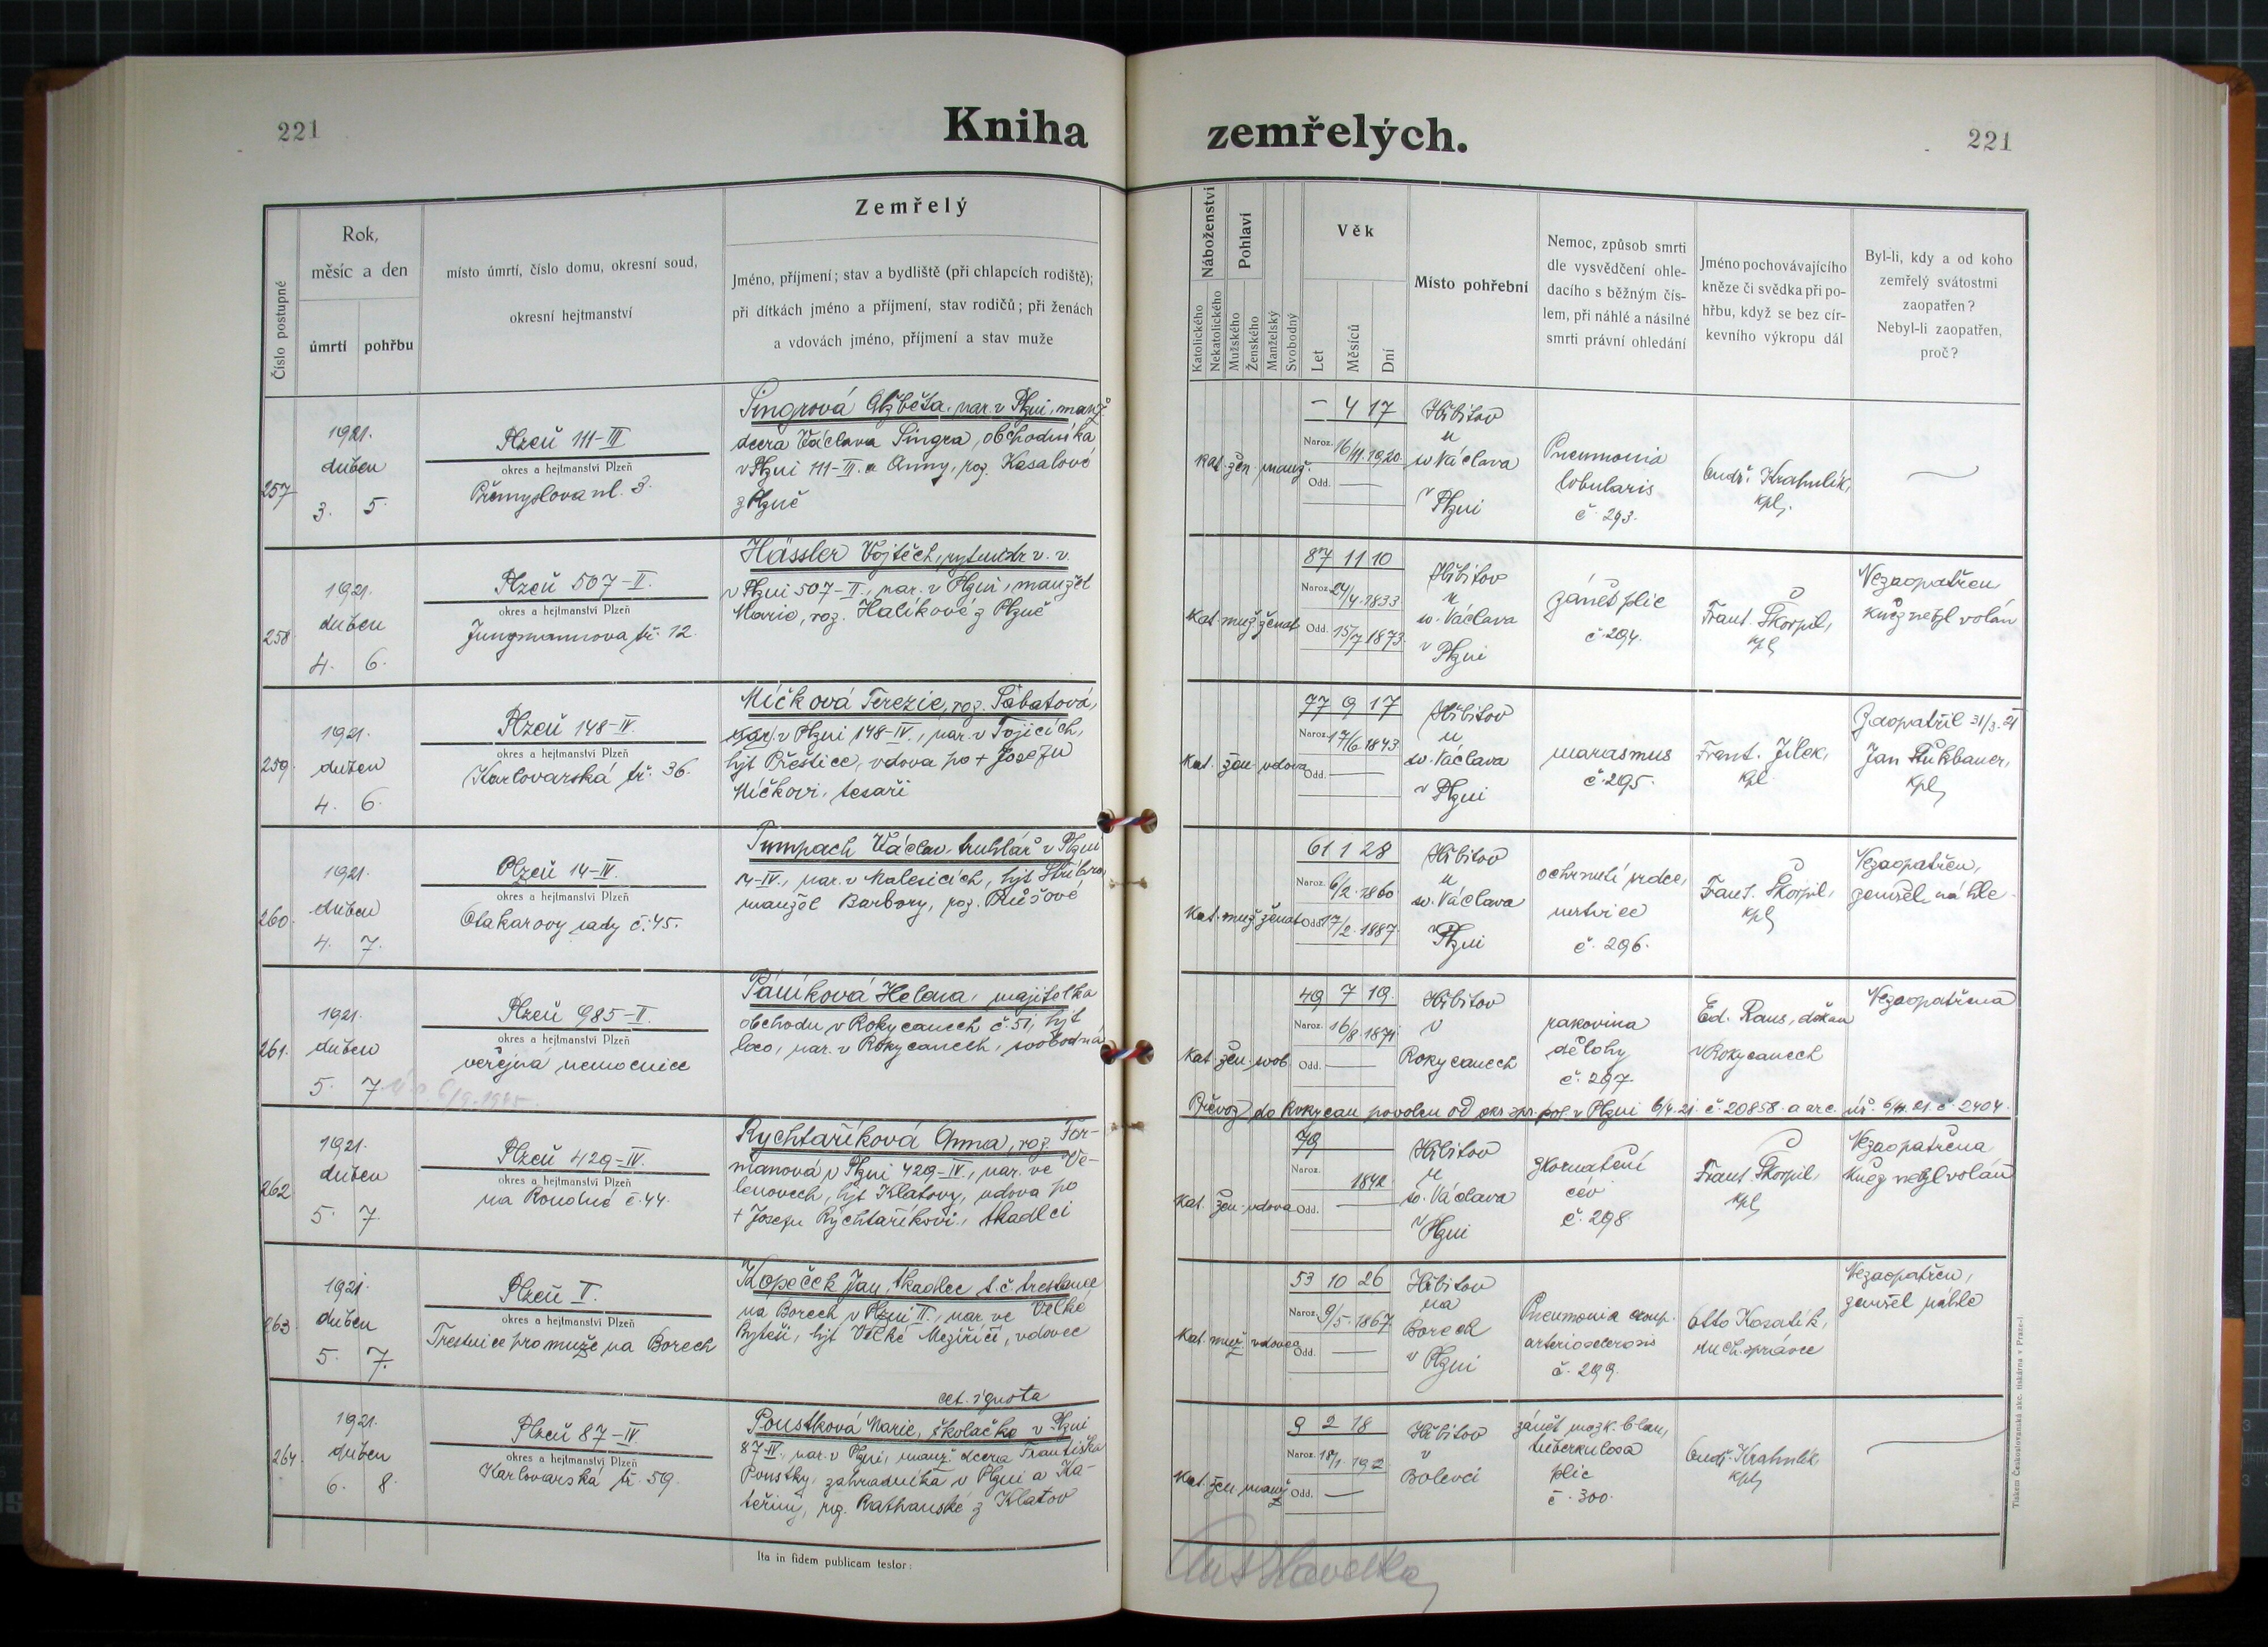 221
Kniha
zemřelých.
221
Číslo postupné
Rok,
měsíc a den
úmrtí
pohřbu
místo úmrtí, číslo domu, okresní soud,
okresní hejtmanství
Zemřelý
Jméno, příjmení; stav a bydliště (při chlapcích rodiště);
při dítkách jméno a příjmení, stav rodičů; při ženách
a vdovách jméno, příjmení a stav muže
Náboženství
Katolického
Nekatolického
Pohlaví
Mužského
Ženského
Manželský
Svobodný
Věk
Let
Měsíců
Dní
Místo pohřební
Nemoc, způsob smrti
dle vysvědčení ohle-
dacího s běžným čís-
lem, při náhlé a násilné
smrti právní ohledání
Jméno pochovávajícího
kněze či svědka při po-
hřbu, když se bez cír-
kevního výkropu dál
Byl-li, kdy a od koho
zemřelý svátostmi
zaopatřen?
Nebyl-li zaopatřen,
proč?
257
1921.
duben
3. 5.
Plzeň 111-III
okres a hejtmanství Plzeň
Přemyslova ul. 3.
Singrová Alžběta, nar. v Plzni, manž.
dcera Václava Singra, obchodníka
v Plzni 111-III. a Anny, roz. Kasalové
z Plzně
Kat. žen. manž.
– 4 17
Naroz. 16/11. 1920.
Odd. —
Hřbitov
u
sv. Václava
v Plzni
Pneumonia
lobularis
č. 293.
Ondř. Krahulík,
kpl.
258
1921.
duben
4. 6.
Plzeň 507-II.
okres a hejtmanství Plzeň
Jungmannova tř. 12.
Hässler Vojtěch, rytmistr v. v.
v Plzni 507-II., nar. v Plzni, manžel
Marie, roz. Halíkové z Plzně
Kat. muž. ženat
87 11 10
Naroz. 24/4. 1833.
Odd. 15/7 1873.
Hřbitov
u
sv. Václava
v Plzni
zánět plic
č. 294.
Frant. Škorpil,
kpl
Nezaopatřen
kněz nebyl volán
259.
1921.
duben
4. 6.
Plzeň 148-IV.
okres a hejtmanství Plzeň
Karlovarská tř. 36.
Míčková Terezie, roz. Sabatová,
v Plzni 148-IV., nar. v Tojicích,
hejt Přeštice, vdova po + Josefu
Míčkovi, tesaři
Kat. žen. vdova
77 9 17
Naroz. 17/6. 1843.
Odd. —
Hřbitov
u
sv. Václava
v Plzni
marasmus
č. 295.
Frant. Jílek,
kpl
Zaopatřil 31/3. 21
Jan
kpl
260.
1921.
duben
4. 7.
Plzeň 14-IV.
okres a hejtmanství Plzeň
Otakarovy sady č. 45.
Tumpach Václav, truhlář v Plzni
14-IV., nar. v Malesicích, hejt Stříbro,
manžel Barbory, roz. Růžové
Kat. muž. ženat
61 1 28
Naroz. 6/2. 1860
Odd. 17/2. 1887.
Hřbitov
u
sv. Václava
v Plzni
ochrnutí srdce,
mrtvice
č. 296.
Frant. Škorpil,
kpl
Nezaopatřen,
zemřel náhle
261.
1921.
duben
5. 7.
6/9. 1925.
Plzeň 985-II.
okres a hejtmanství Plzeň
veřejná nemocnice
Paníková Helena, majitelka
obchodu v Rokycanech č. 51, hejt
loco, nar. v Rokycanech, svobodná
Kat. žen. svob.
49 7 19.
Naroz. 16/8. 1871
Odd. —
Hřbitov
v
Rokycanech
rakovina
dělohy
č. 297.
Ed. Raus, děkan
v Rokycanech
Nezaopatřena
Převoz do Rokycan povolen od okr. spr. pol. v Plzni 6/4. 21. č. 20858. a arc. úř. 6/4. 21. č. 2404.
262
1921.
duben
5. 7.
Plzeň 429-IV.
okres a hejtmanství Plzeň
na Roudné č. 44.
Rychtaříková Anna, roz. For-
manová v Plzni 429-IV., nar. ve Ve-
lenovech, hejt Klatovy, vdova po
+ Josefu Rychtaříkovi, tkadlci
Kat. žen. vdova
79
Naroz.
1842
Odd. —
Hřbitov
u
sv. Václava
v Plzni
zkornatění
cév
č. 298.
Frant. Škorpil,
kpl
Nezaopatřena
Kněz nebyl volán
263.
1921.
duben
5. 7.
Plzeň II.
okres a hejtmanství Plzeň
Trestnice pro muže na Borech
Kopeček Jan, tkadlec t. č. trestanec
na Borech v Plzni II., nar. ve Velké
Byteši, hejt Velké Meziříčí, vdovec
Kat. muž. vdovec
53 10 26
Naroz. 9/5. 1867
Odd. —
Hřbitov
na
Borech
v Plzni
Pneumonia croup.
arteriosclerosis
č. 299.
Otto Kosatík,
duch. správce
Nezaopatřen,
zemřel náhle
264
1921.
duben
6. 8.
Plzeň 87-IV.
okres a hejtmanství Plzeň
Karlovarská tř. 59.
Poustková Marie, školačka v Plzni
87-IV., nar. v Plzni, manž. dcera Františka
Poustky, zahradníka v Plzni a Ka-
teřiny, roz. z Klatov
Kat. žen. manž
9 2 18
Naroz. 18/1. 192
Odd. —
Hřbitov
v
Bolevci
zánět mozk. blan,
tuberkulosa
plic
č. 300.
Ondř. Krahulík,
kpl
Ita in fidem publicam testor:
Tiskem Československé akc. tiskárna v Praze-I.